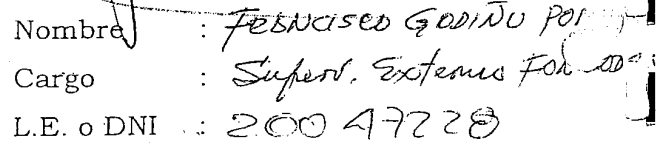 Nombre : FRANCISCO GODIÑO POI
Cargo : Superv. Externo FON
L.E. o DNI : 20047228